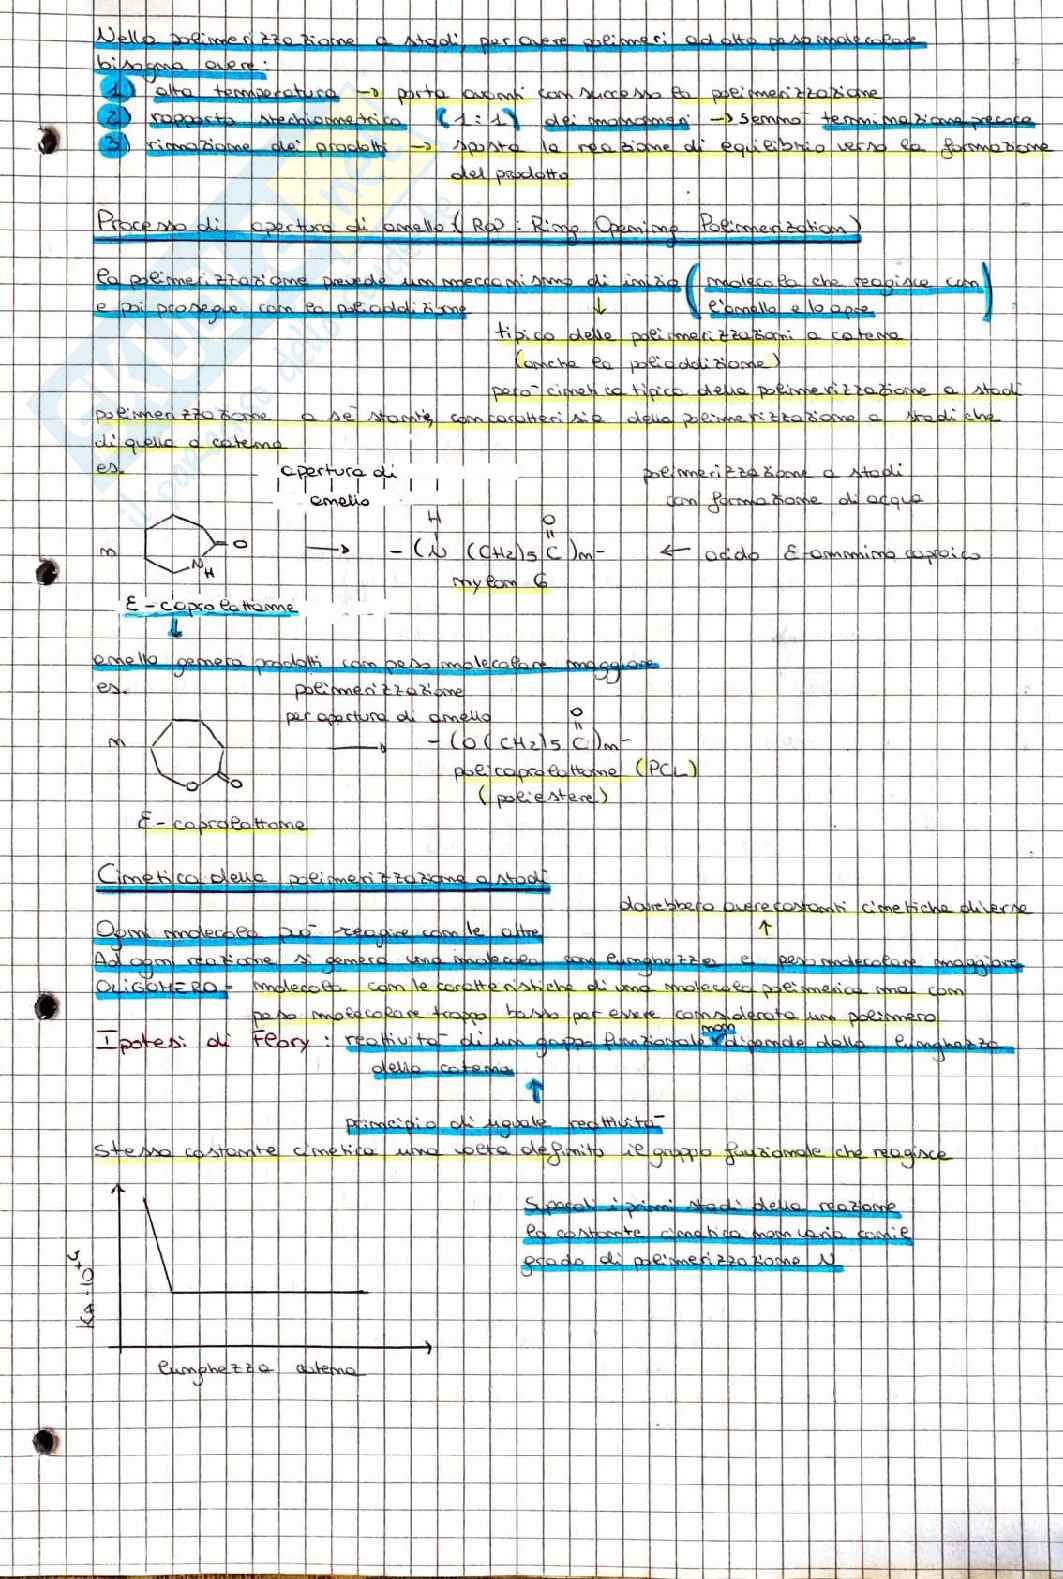 Nella polimerizzazione a stadi, per avere polimeri ad alto peso molecolare
bisogna avere:
1) alta temperatura → porta avanti con successo la polimerizzazione
2) rapporto stechiometrico (1:1) dei monomeri → sennò terminazione precoce
3) rimozione dei prodotti → sposta la reazione di equilibrio verso la formazione
del prodotto
Processo di apertura di anello ( : Ring Opening Polimerization)
la polimerizzazione prevede un meccanismo di inizio (molecola che reagisce con
e poi prosegue con la poliaddizione l'anello e lo apre)
↓
tipico delle polimerizzazioni a catena
(anche la poliaddizione)
però cinetica tipica della polimerizzazione a stadi
polimerizzazione a sé stante, con caratteri sia della polimerizzazione a stadi che
di quella a catena
es. apertura di polimerizzazione a stadi
anello con formazione di acqua
H O
n O → -(N (CH2)5 C)n- ← acido ε-ammino caproico
N
H nylon 6
ε-caprolattame
↓
anello genera prodotti con peso molecolare maggiore
es. polimerizzazione
per apertura di anello O
n → -(O (CH2)5 C)n-
O O policaprolattame (PCL)
(poliestere)
ε-caprolattame
Cinetica della polimerizzazione a stadi
dovrebbero avere costanti cinetiche diverse
Ogni molecola può reagire con le altre ↑
Ad ogni reazione si genera una molecola con lunghezza e peso molecolare maggiore
OLIGOMERO - molecola con le caratteristiche di una molecola polimerica ma con
peso molecolare troppo basso per essere considerata un polimero
non
Ipotesi di Flory : reattività di un gruppo funzionale dipende dalla lunghezza
della catena
↑
principio di uguale reattività
stessa costante cinetica una volta definito il gruppo funzionale che reagisce
i primi stadi della reazione
la costante cinetica non varia con il
grado di polimerizzazione N
lunghezza catena